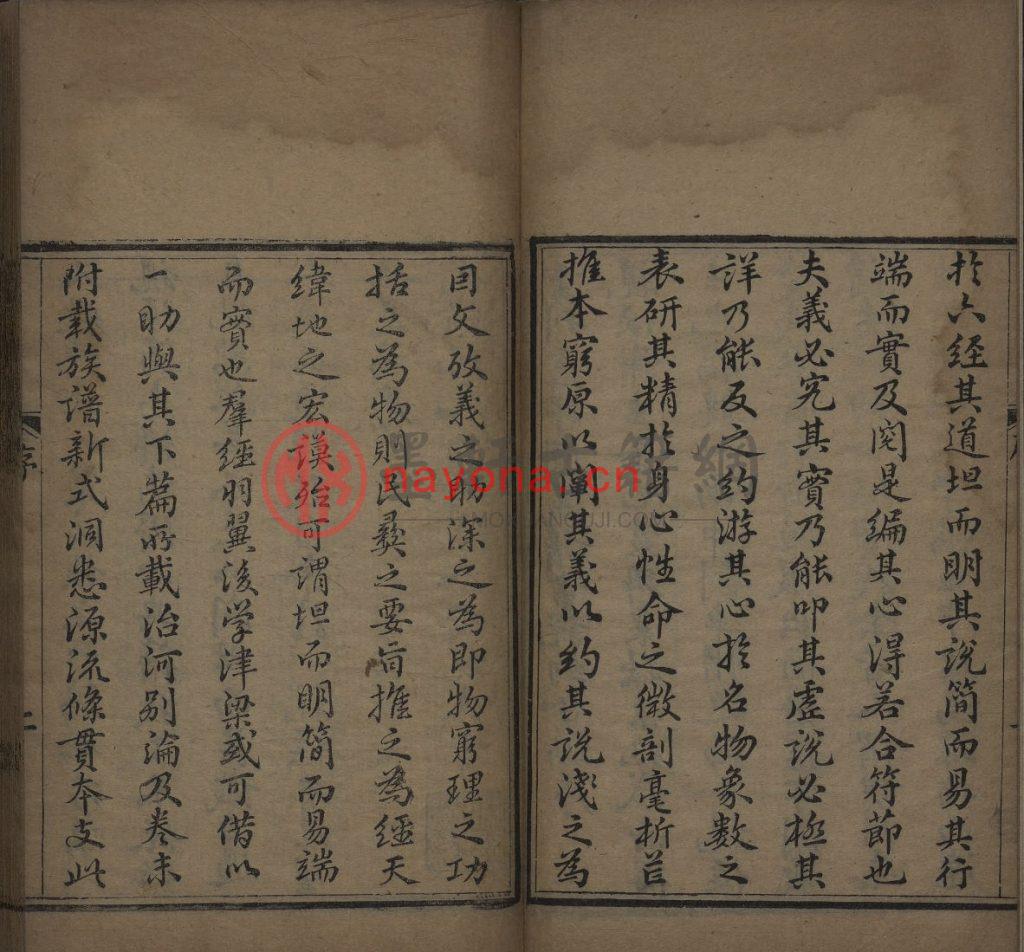 於六經其道坦而明其說簡而易其行
端而實及閱是編其心得若合符節也
夫義必究其實乃能叩其虛說必極其
詳乃能反之約游其心於名物象數之
表研其精於身心性命之微剖毫析芒
推本窮原以闡其義以約其說淺之為
因文攷義之助深之為即物窮理之功
括之為物則民彝之要旨推之為經天
緯地之宏謨殆可謂坦而明簡而易端
而實也羣經羽翼後学津梁或可借以
一助與其下篇所載治河別論及卷末
附載族譜新式洞悉源流條貫本支此
序
二
墨軒古籍網
nayona.cn